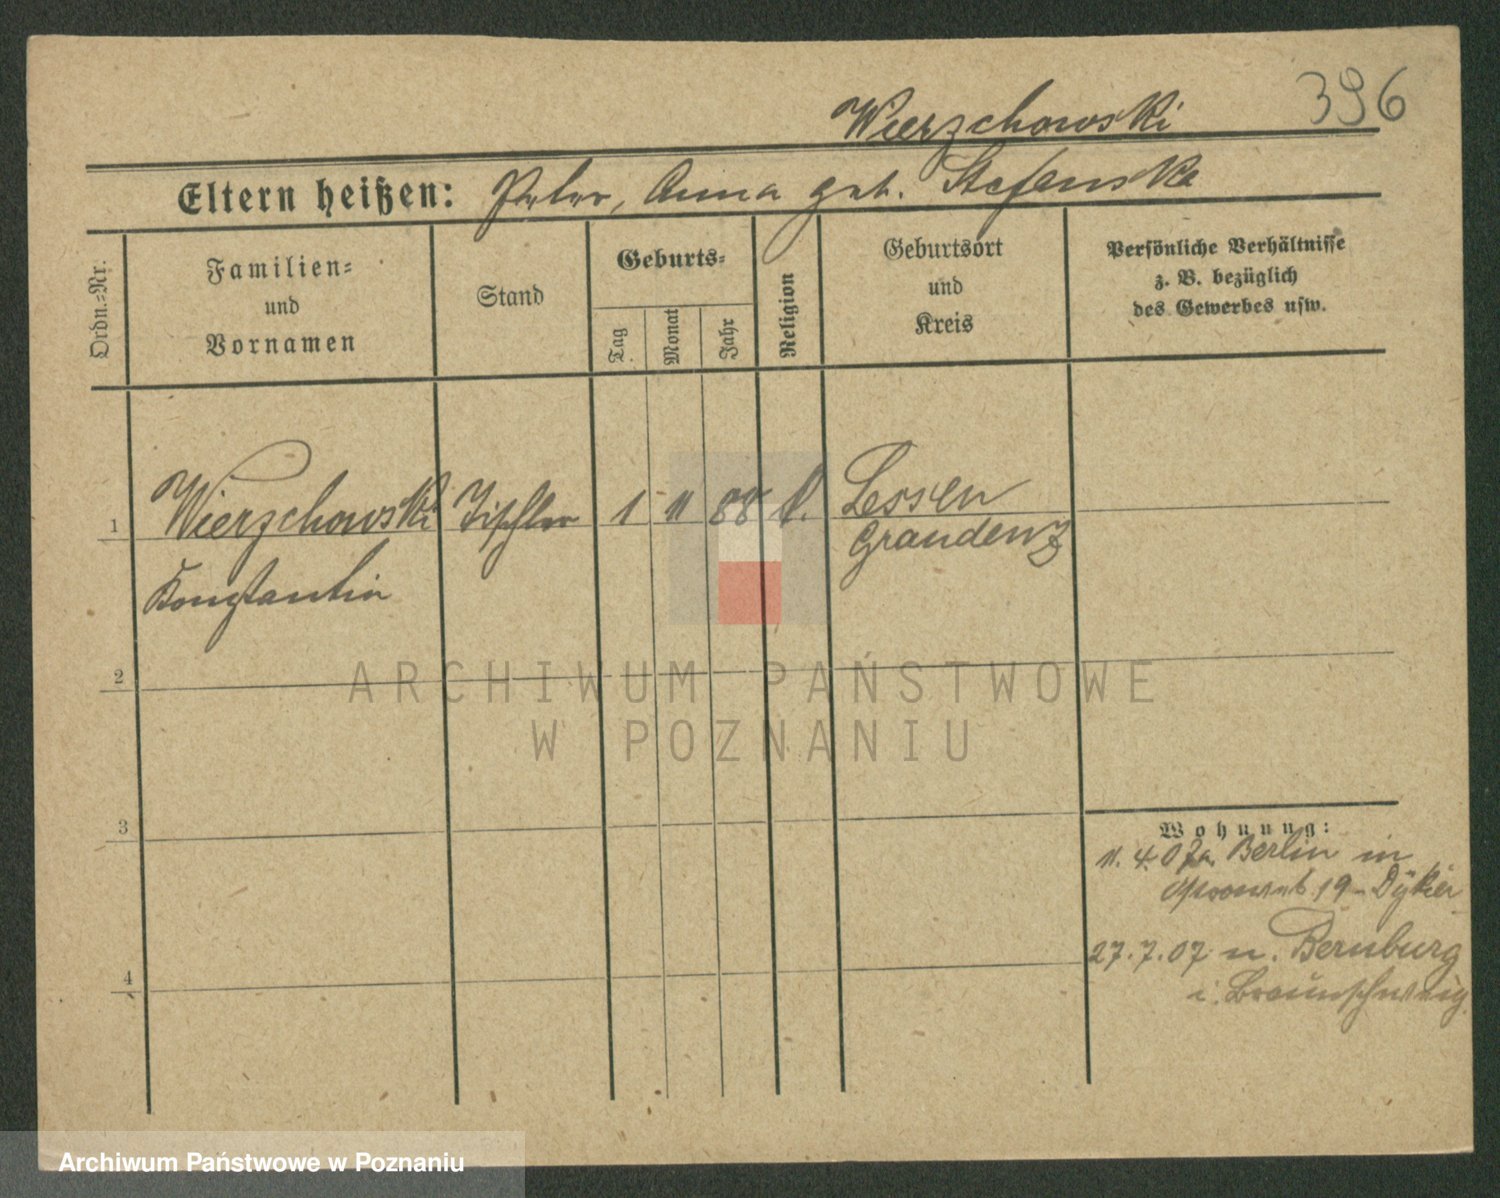 396
Wierzchowski
Eltern heißen: Peter, Anna geb. Stefenska
Ordn.-Nr.
Familien-
und
Vornamen
Stand
Geburts-
Tag
Monat
Jahr
Religion
Geburtsort
und
Kreis
Persönliche Verhältnisse
z. B. bezüglich
des Gewerbes usw.
1
Wierzchowski Tischler 1 11 88 k. Lessen
Konstantin
Graudenz
2
3
4
Wohnung:
11. 4. 07 Berlin in
19 - Dyker
27. 7. 07 n. Bernburg
i. Braunschweig.
ARCHIWUM PAŃSTWOWE
W POZNANIU
Archiwum Państwowe w Poznaniu